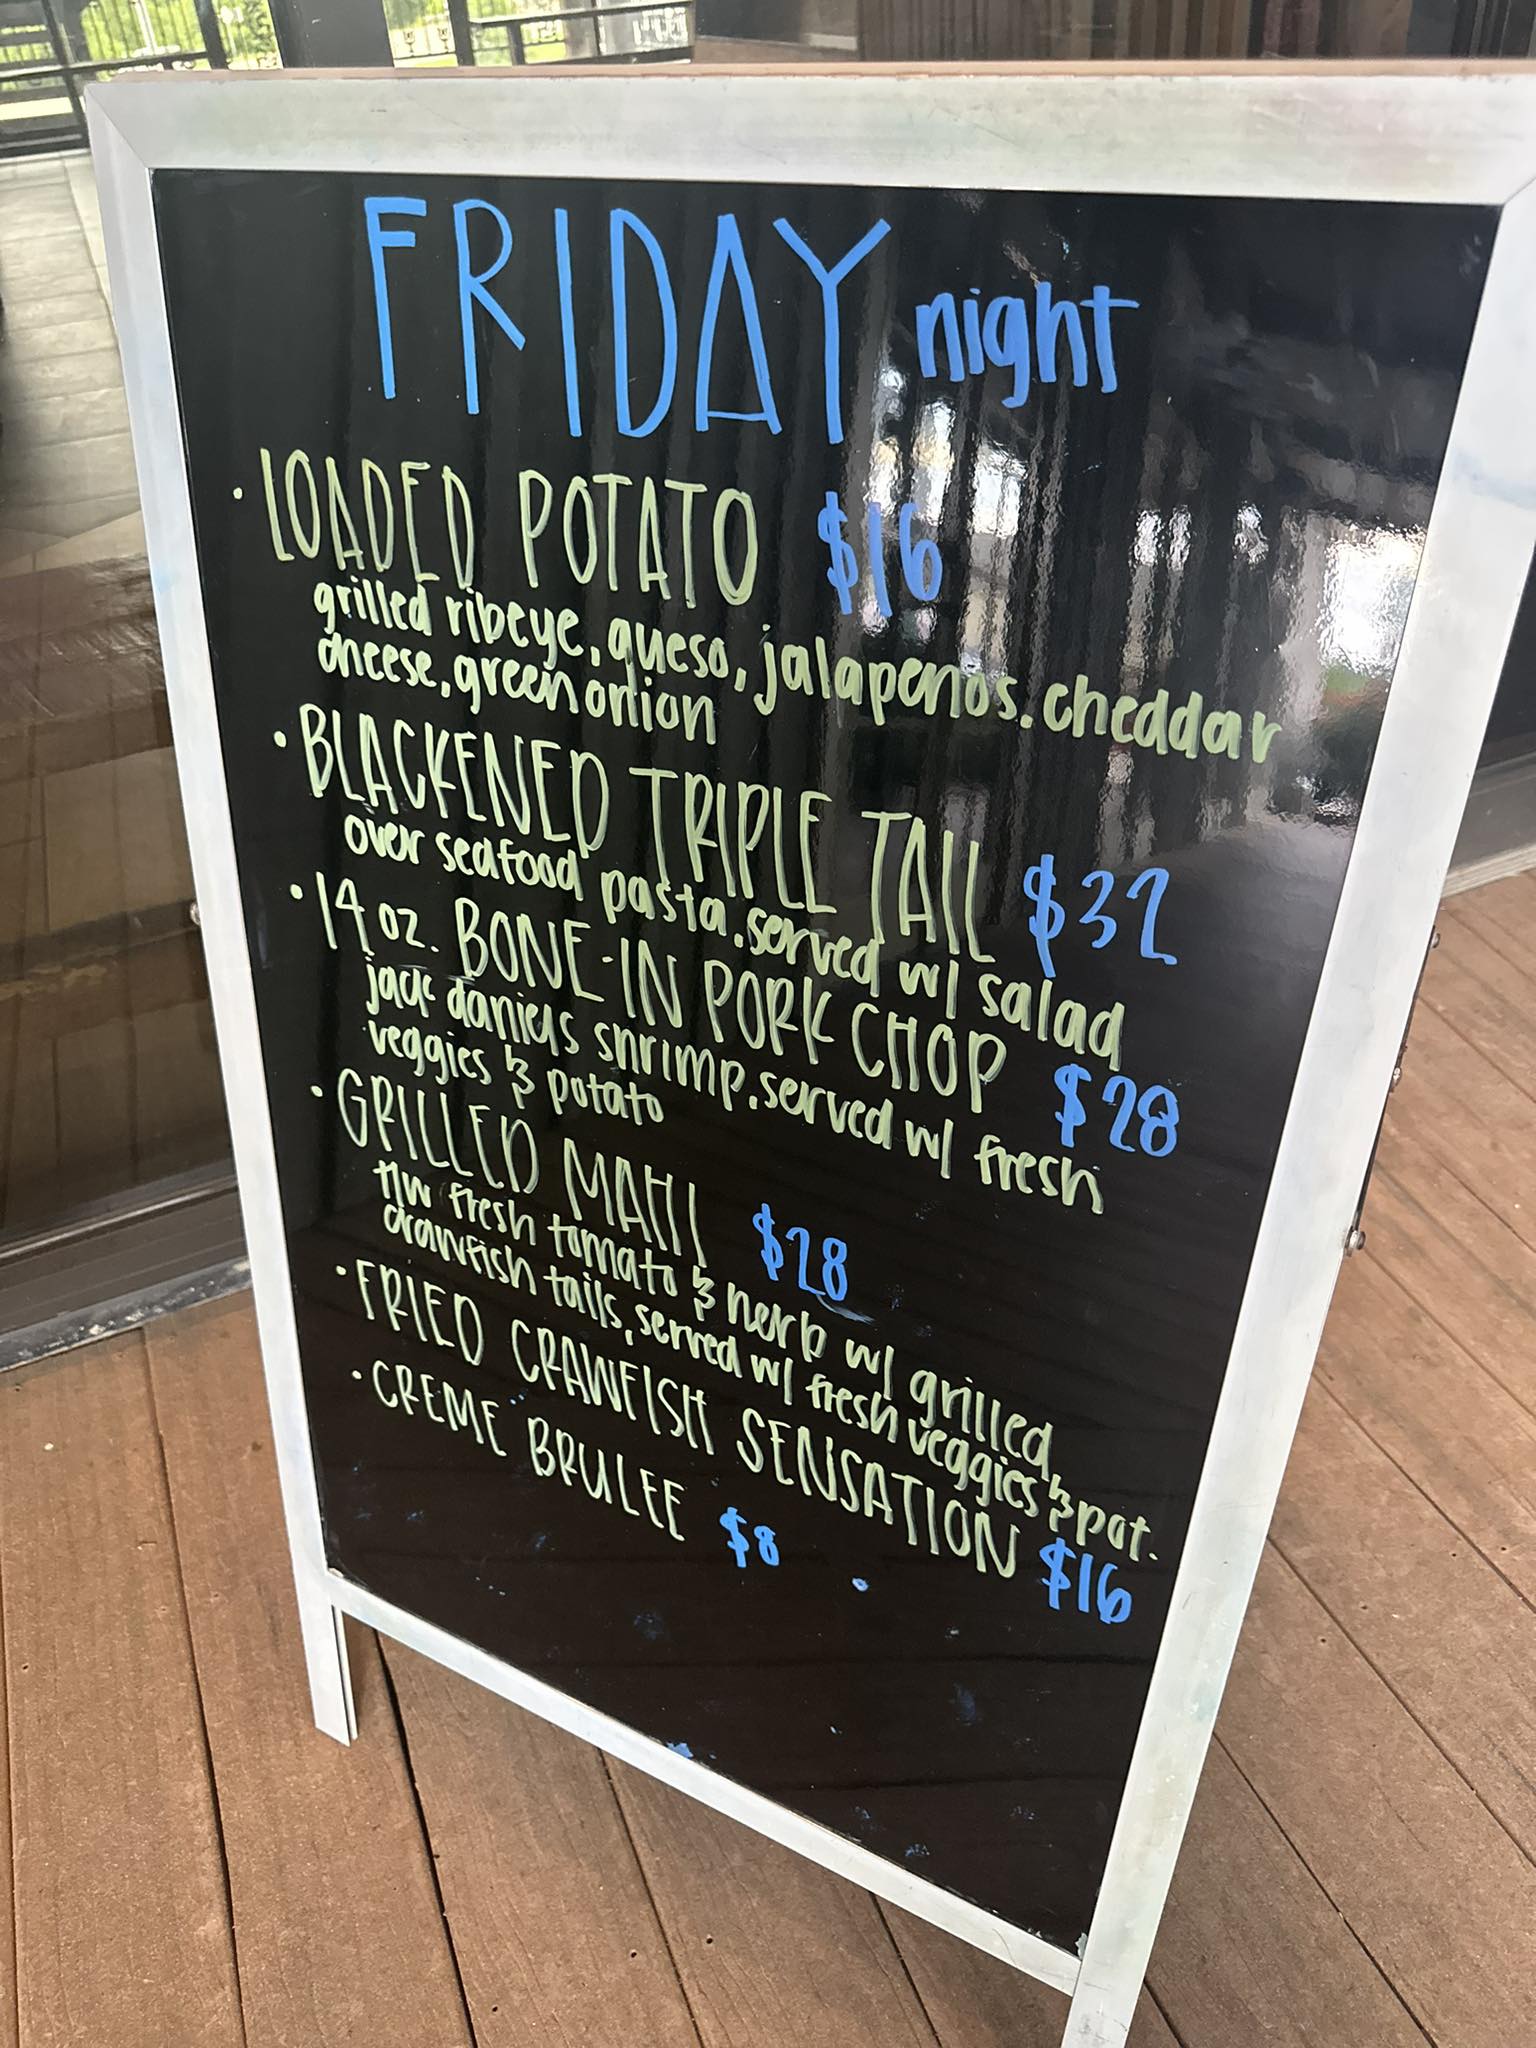 FRIDAY night
• LOADED POTATO $16
grilled ribeye, queso, jalapenos, cheddar
cheese, green onion
• BLACKENED TRIPLE TAIL $32
over seafood pasta, served w/ salad
• 14 oz. BONE-IN PORK CHOP $28
jack daniels shrimp, served w/ fresh
veggies & potato
• GRILLED MAHI $28
tlw fresh tomato & herb w/ grilled
crawfish tails, served w/ fresh veggies & pot.
• FRIED CRAWFISH SENSATION $16
• CREME BRULEE $8